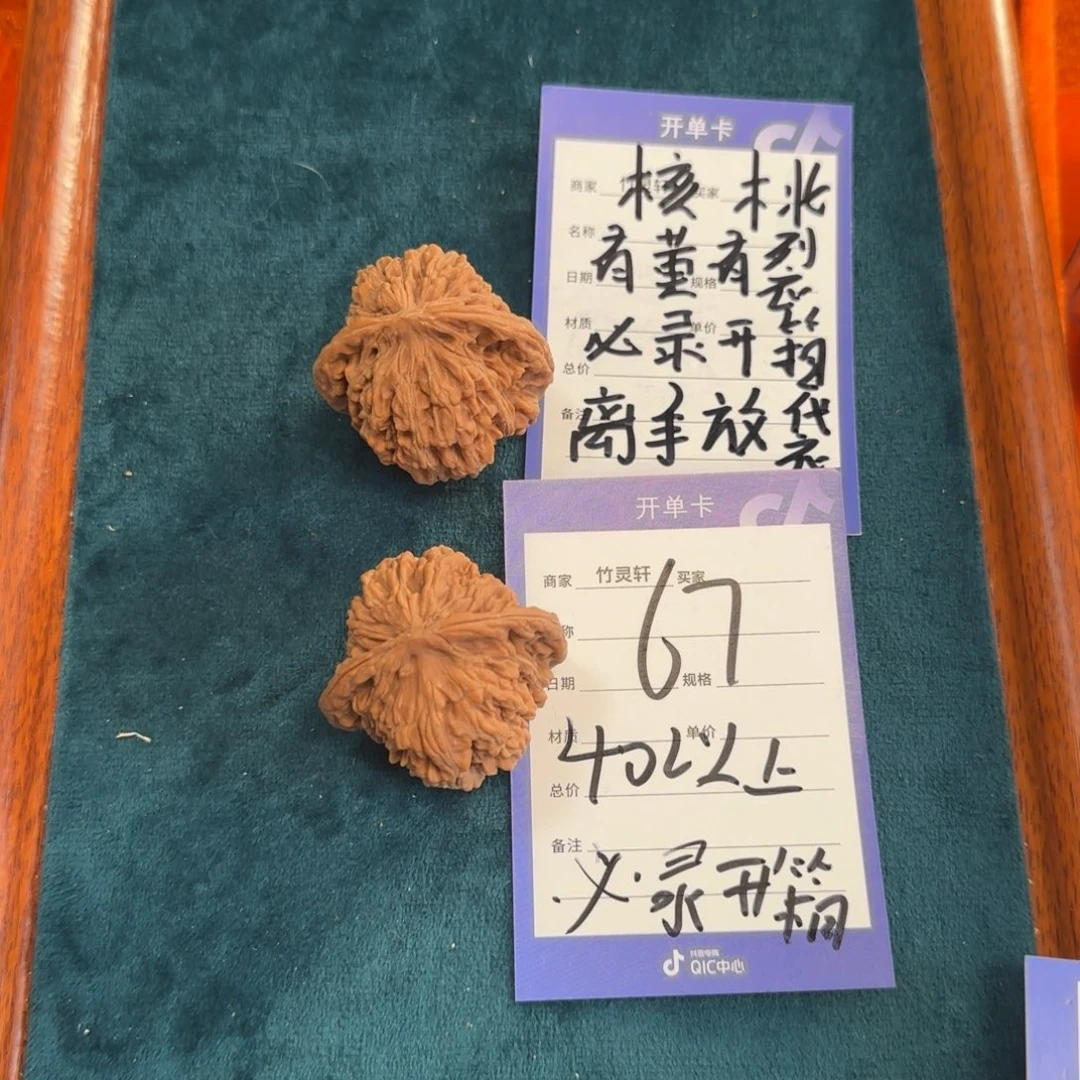 开单卡
商家 竹灵轩 买家
核桃
名称
有董有裂
日期 规格
材质 单价
必录开箱
总价
备注
离手放袋
开单卡
商家 竹灵轩 买家
67
称
日期 规格
材质 单价
40以上
总价
备注
必录开箱
抖音电商
QIC中心